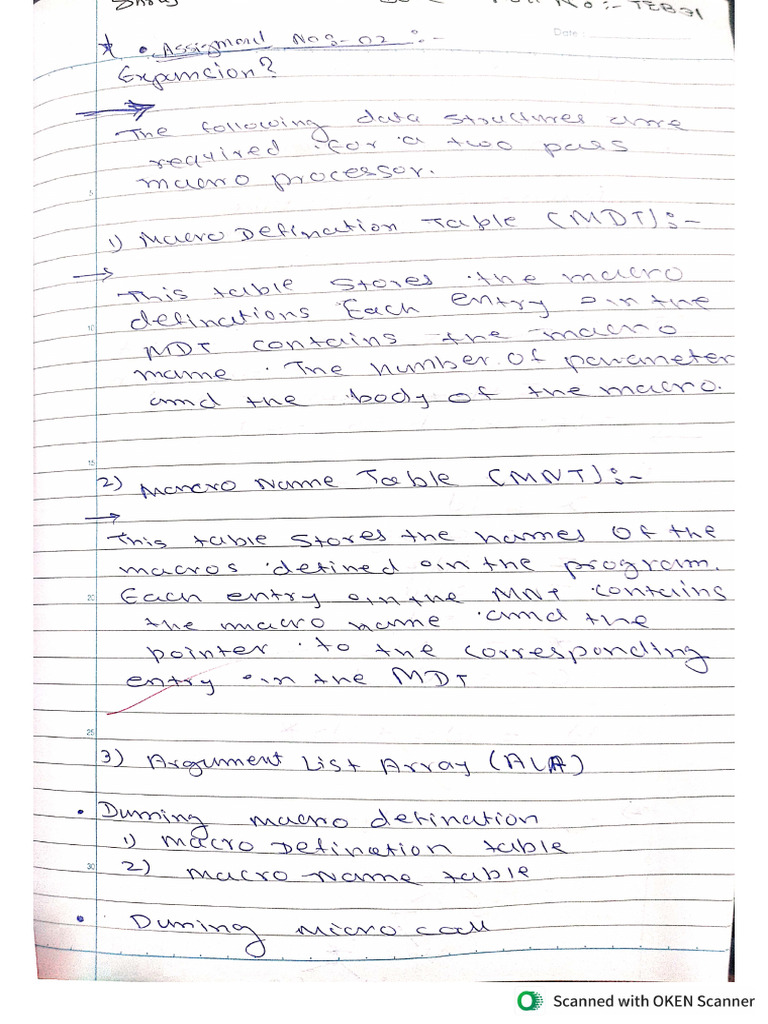 Roll No :- TEB31
Date :
* • Assignment No :- 02 :-
Expancion?
The following data structures are
required for a two pass
macro processor.
1) Macro Defination Table (MDT) :-
This table stores the macro
definations Each entry in the
MDT contains the macro
name. The number of parameter
and the body of the macro.
2) Mancro Name Table (MNT) :-
This table stores the names of the
macros defined in the program.
Each entry in the MNT contains
the macro name and the
pointer to the corresponding
entry in the MDT
3) Argument List Array (ALA)
• During macro defination
1) Macro Defination table
2) Macro Name table
• During micro call
5
10
15
20
25
30
Scanned with OKEN Scanner